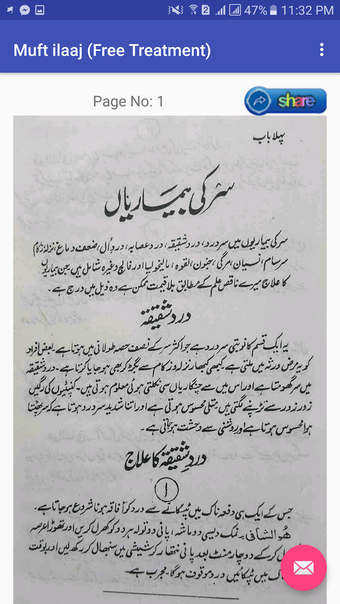 47% 11:32 PM
Muft ilaaj (Free Treatment)
Page No: 1
share
پہلا باب
سر کی بیماریاں
سر کی بیماریوں میں سردرد، درد شقیقہ، درد عصابہ، دردِ وال، ضعف دماغ، نزلہ زکام
سرسام، نسیان، مرگی، جنون، لقوہ، مالیخولیا اور فالج وغیرہ شامل ہیں۔ جن بیماریوں
کا علاج میرے ناقص علم کے مطابق بلا قیمت ممکن ہے وہ ذیل میں درج ہے۔
درد شقیقہ
یہ ایک قسم کا نوبتی سردرد ہے جو اکثر سر کے نصف حصہ طولانی میں ہوتا ہے۔ بعض افراد
کو یہ مرض ورثہ میں ملتی ہے۔ کبھی کبھار نزلہ و زکام سے بگڑ کر بھی ہو جایا کرتا ہے۔ درد شقیقہ
میں سر گھومتا ہے اور اس میں سے چنگاریاں سی نکلتی ہوئی معلوم ہوتی ہیں۔ کنپٹیوں کی رگیں
زور زور سے تڑپنے لگتی ہیں، متلی محسوس ہوتی ہے اور اتنا شدید سردرد ہوتا ہے کہ سر پھٹتا
ہوا محسوس ہوتا ہے اور روشنی سے وحشت ہو جاتی ہے۔
درد شقیقہ کا علاج
۱
جس کے ایک ہی دفعہ ناک میں ٹپکانے سے درد کو آفاقہ ہونا شروع ہو جاتا ہے۔
ھوالشافی۔ نمک دیسی دو ماشہ، پانی دو تولہ ہر دو کو کھرل کریں اور تھوڑا عرصہ
کر کے دو چار منٹ بعد پانی نتھار کر شیشی میں سنبھال کر رکھ لیں اور بوقت
ناک میں ٹپکائیں درد موقوف ہو گا۔ مجرب ہے۔